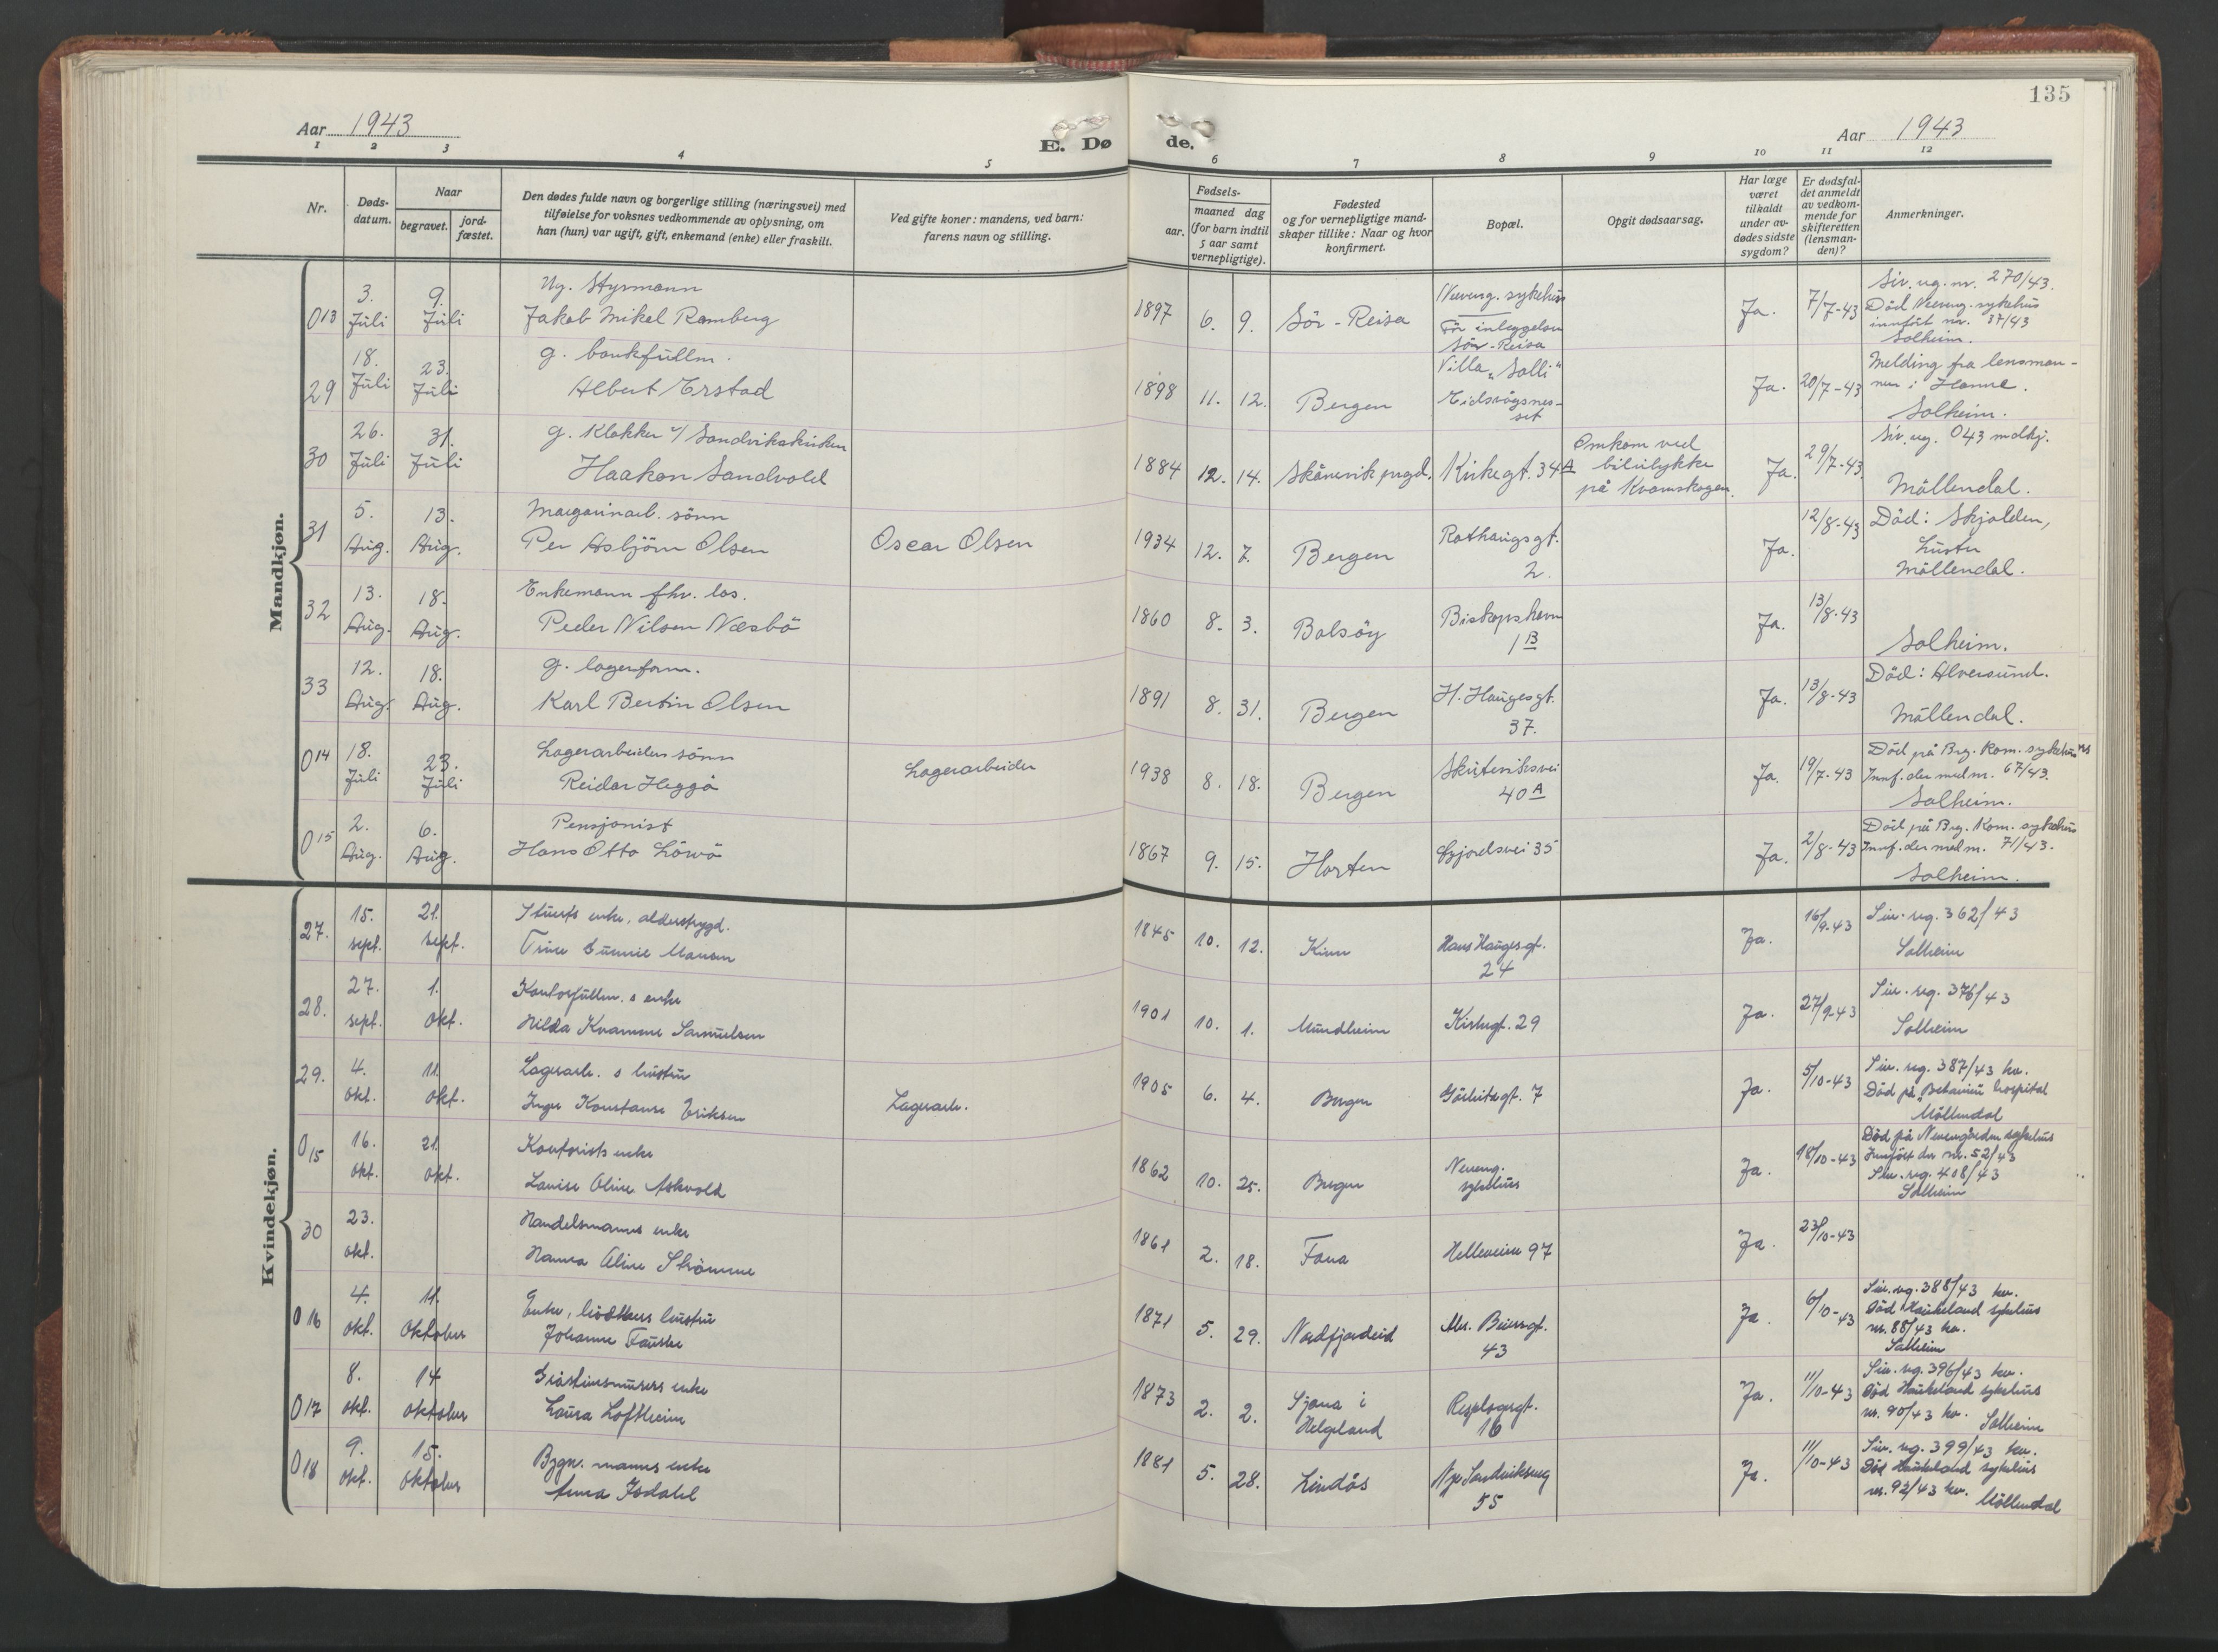 135
Aar 1943
E. Døde.
Aar 1943
1 2 3 4 5 6 7 8 9 10 11 12
Nr.
Døds-
datum.
Naar
begravet.
jord-
fæstet.
Den dødes fulde navn og borgerlige stilling (næringsvei) med
tilføielse for voksnes vedkommende av oplysning, om
han (hun) var ugift, gift, enkemand (enke) eller fraskilt.
Ved gifte koner: mandens, ved barn:
farens navn og stilling.
Fødsels-
aar.
maaned dag
(for barn indtil
5 aar samt
vernepligtige).
Fødested
og for vernepligtige mand-
skaper tillike: Naar og hvor
konfirmert.
Bopæl.
Opgit dødsaarsag.
Har læge
været
tilkaldt
under av-
dødes sidste
sygdom?
Er dødsfal-
det anmeldt
av vedkom-
mende for
skifteretten
(lensman-
den)?
Anmerkninger.
Mandkjøn.
013 3. Juli 9. Juli
Ug. Styrmann
Jakob Mikal Ramberg
1897 6. 9. Sör-Reisa
Neveng. sykehus
För inleggelsen
Sör-Reisa
Ja. 7/7-43
Siv. reg. nr. 270/43.
Död Neveng. sykehus
innfört nr. 37/43
Solheim.
29 18. Juli 23. Juli
g. bankfullm.
Albert Erstad
1898 11. 12. Bergen
Villa "Solli"
Eidsvågsnes-
set
Ja. 20/7-43
Melding fra lensman-
nen i Hamre.
Solheim.
30 26. Juli 31. Juli
g. Klokker v/ Sandvikskirken
Haakon Sandvold
1884 12. 14. Skånevik prgd. Kirkegt. 34A
Omkom ved
bilulykke
på Kvamskogen.
Ja. 29/7-43
Siv. reg. 043 mdkj.
Möllendal.
31 5. Aug. 13. Aug.
Margarinarb. sönn
Per Asbjörn Olsen
Oscar Olsen
1934 12. 7. Bergen
Rothaugsgt.
2.
Ja. 12/8-43
Död: Skjolden,
Luster
Möllendal.
32 13. Aug. 18. Aug.
Enkemann fhv. los.
Peder Nilsen Næsbö
1860 8. 3. Bolsöy
Biskopshavn
1B
Ja. 13/8-43
Solheim.
33 12. Aug. 18. Aug.
g. lagerform.
Karl Bertin Olsen
1891 8. 31. Bergen
H. Haugesgt.
37.
Ja. 13/8-43
Död: Alversund.
Möllendal.
014 18. Juli 23. Juli
Lagerarbeiders sönn
Reidar Heggö
Lagerarbeider
1938 8. 18. Bergen
Skuteviksvei
40A
Ja. 19/7-43
Död på Brg. Kom. sykehus
Innf. der med nr. 67/43.
Solheim.
015 2. Aug. 6. Aug.
Pensjonist
Hans Otto Lövö
1867 9. 15. Horten
35
Ja. 2/8-43
Död på Brg. Kom. sykehus
Innf. der med nr. 71/43.
Solheim.
Kvindekjøn.
27. 15. sept. 21. sept.
Stuerts enke, alderstrygd.
Trine Monsen
1845 10. 12. Kinn
Hans Haugesgt.
24
Ja. 16/9-43
Siv. reg. 362/43
Solheim
28. 27. sept. 1. okt.
Kontorfullm. s enke
Hilda Kvamme Samuelsen
1901 10. 1. Mundheim Kirkegt. 29
Ja. 27/9-43
Siv. reg. 376/43
Solheim
29. 4. okt. 11. okt.
Lagerarb. s hustru
Inga Konstanse Eriksen
Lagerarb.
1905 6. 4. Bergen Görbitzgt. 7
Ja. 5/10-43
Siv. reg. 387/43 kv.
Död på Betanien hospital
Möllendal
015 16. okt. 21. okt.
Kontorists enke
Louise Oline Askvold
1862 10. 25. Bergen
Neveng.
sykehus
Ja. 18/10-43
Död på Nevengården sykehus
Innfört der nr. 52/43
Siv. reg. 408/43
Solheim
30 23. okt.
Handelsmanns enke
Hanna Oline Strömme
1861 2. 18. Fana Helleveien 97
Ja. 23/10-43
016 4. okt. 11. Oktober
Enke, hustru
Johanne Fauske
1871 5. 29. Nordfjordeid
Abs. Beiersgt.
43
Ja. 6/10-43
Siv. reg. 388/43 kv.
Död Haukeland sykehus
nr. 88/43 kv.
Solheim
017 8. okt. 14 oktober
enke
Laura Loftheim
1873 2. 2.
Sjona i
Helgeland
Repslagergt.
16
Ja. 11/10-43
Siv. reg. 396/43 kv.
Död Haukeland sykehus
nr. 90/43 kv. Solheim
018 9. okt. 15. oktober
Bygn. manns enke
Anna Isdahl
1881 5. 28. Lindås
Nye Sandviksveg
55
Ja. 11/10-43
Siv. reg. 399/43 kv.
Död Haukeland sykehus
nr. 92/43 kv. Möllendal